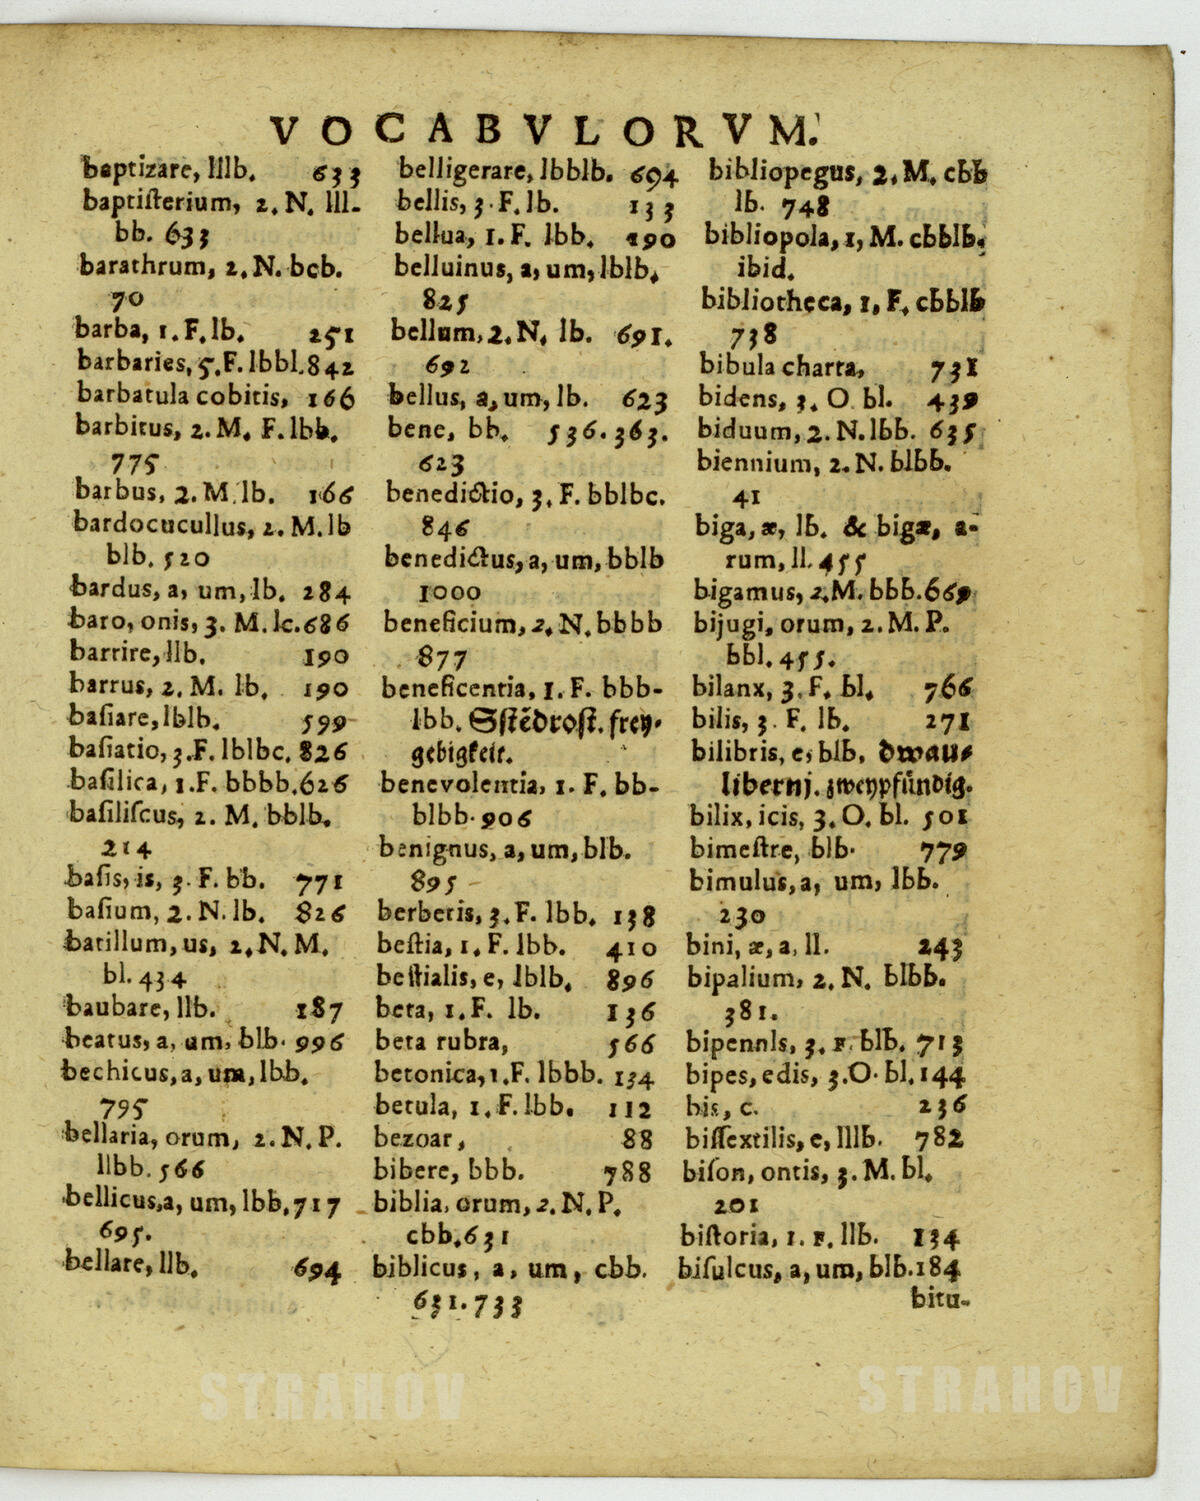 VOCABVLORVM.
baptizare, lllb. 633
baptiſterium, 2. N. lll-
bb. 633
barathrum, 2. N. bcb.
70
barba, 1. F. lb. 251
barbaries, 5. F. lbbl. 842
barbatula cobitis, 166
barbitus, 2. M. F. lbb.
775
barbus, 2. M. lb. 166
bardocucullus, 2. M. lb
blb. 520
bardus, a, um, lb. 284
baro, onis, 3. M. lc. 686
barrire, llb. 190
barrus, 2. M. lb. 190
baſiare, lblb. 599
baſiatio, 3. F. lblbc. 826
baſilica, 1. F. bbbb. 626
baſiliſcus, 2. M. bblb.
214
baſis, is, 3. F. bb. 771
baſium, 2. N. lb. 826
batillum, us, 2. N. M.
bl. 434
baubare, llb. 187
beatus, a, um, blb. 996
bechicus, a, um, lbb.
795
bellaria, orum, 2. N. P.
llbb. 566
bellicus, a, um, lbb. 717
695.
bellare, llb. 694
belligerare, lbblb. 694
bellis, 3. F. lb. 133
bellua, 1. F. lbb. 190
belluinus, a, um, lblb.
825
bellum, 2. N. lb. 691.
692
bellus, a, um, lb. 623
bene, bb. 536. 363.
623
benedictio, 3. F. bblbc.
846
benedictus, a, um, bblb
1000
beneficium, 2. N. bbbb
877
beneficentia, 1. F. bbb-
lbb. Sſtĕdroſt. frey-
gebigkeit.
benevolentia, 1. F. bb-
blbb. 906
benignus, a, um, blb.
895
berberis, 3. F. lbb. 138
beſtia, 1. F. lbb. 410
beſtialis, e, lblb. 896
beta, 1. F. lb. 136
beta rubra, 566
betonica, 1. F. lbbb. 134
betula, 1. F. lbb. 112
bezoar, 88
bibere, bbb. 788
biblia, orum, 2. N. P.
cbb. 631
biblicus, a, um, cbb.
631. 733
bibliopegus, 2. M. cbb
lb. 748
bibliopola, 1, M. cbblb.
ibid.
bibliotheca, 1, F. cbblb
738
bibula charta, 731
bidens, 3. O bl. 439
biduum, 2. N. lbb. 635
biennium, 2. N. blbb.
41
biga, æ, lb. & bigæ, a-
rum, ll. 455
bigamus, 2. M. bbb. 669
bijugi, orum, 2. M. P.
bbl. 455.
bilanx, 3. F. bl. 766
bilis, 3. F. lb. 271
bilibris, e, blb. dwau-
libernj. zweypfündig.
bilix, icis, 3. O. bl. 501
bimeſtre, blb. 779
bimulus, a, um, lbb.
230
bini, æ, a, ll. 243
bipalium, 2. N. blbb.
381.
bipennls, 3. F. blb. 713
bipes, edis, 3. O. bl. 144
bis, c. 236
biſſextilis, e, lllb. 782
biſon, ontis, 3. M. bl.
201
biſtoria, 1. F. llb. 134
biſulcus, a, um, blb. 184
bitu-
STRAHOV
STRAHOV